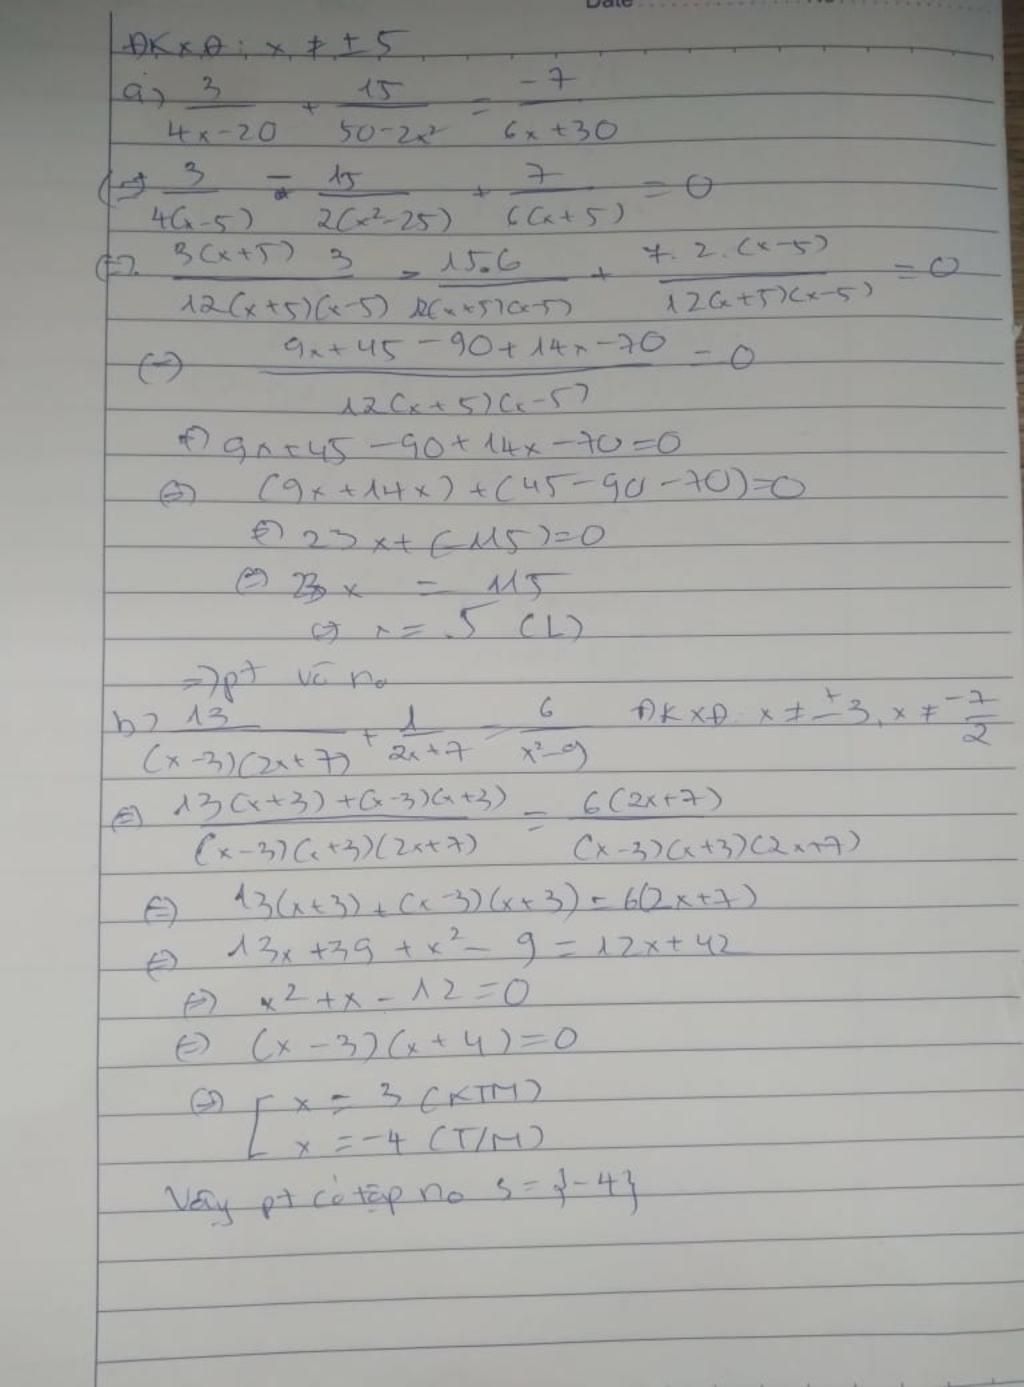 Date
ĐKXĐ: x ≠ ± 5
a) 3/(4x-20) + 15/(50-2x²) = -7/(6x+30)
(=) 3/(4(x-5)) - 15/(2(x²-25)) + 7/(6(x+5)) = 0
(=) 3(x+5) 3/(12(x+5)(x-5)) - 15.6/(12(x+5)(x-5)) + 7.2.(x-5)/(12(x+5)(x-5)) = 0
(=) (9x+45-90+14x-70)/(12(x+5)(x-5)) = 0
(=) 9x+45-90+14x-70=0
(=) (9x+14x)+(45-90-70)=0
(=) 23x+(-115)=0
(=) 23x = 115
(=) x = 5 (L)
=> pt vô no
b) 13/((x-3)(2x+7)) + 1/(2x+7) = 6/(x²-9) ĐKXĐ: x ≠ ±3, x ≠ -7/2
(=) (13(x+3)+(x-3)(x+3))/((x-3)(x+3)(2x+7)) = 6(2x+7)/((x-3)(x+3)(2x+7))
(=) 13(x+3)+(x-3)(x+3) = 6(2x+7)
(=) 13x+39+x²-9=12x+42
(=) x²+x-12=0
(=) (x-3)(x+4)=0
(=) [ x = 3 (KTM)
x = -4 (T/M)
Vậy pt có tập no S={-4}